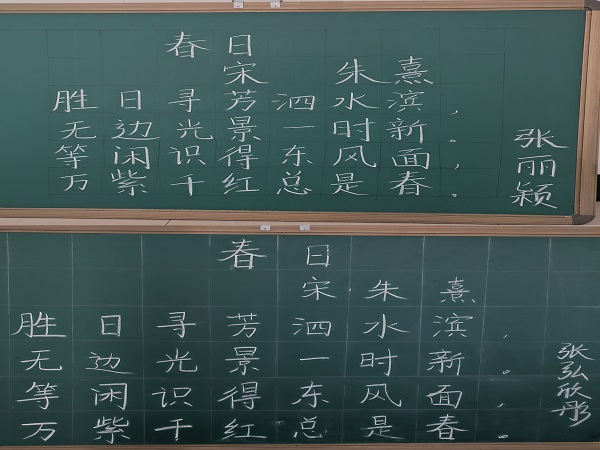 春日
宋 朱熹
胜日寻芳泗水滨，
无边光景一时新。
等闲识得东风面，
万紫千红总是春。
张丽颖
春日
宋 朱熹
胜日寻芳泗水滨，
无边光景一时新。
等闲识得东风面，
万紫千红总是春。
张弘欣彤